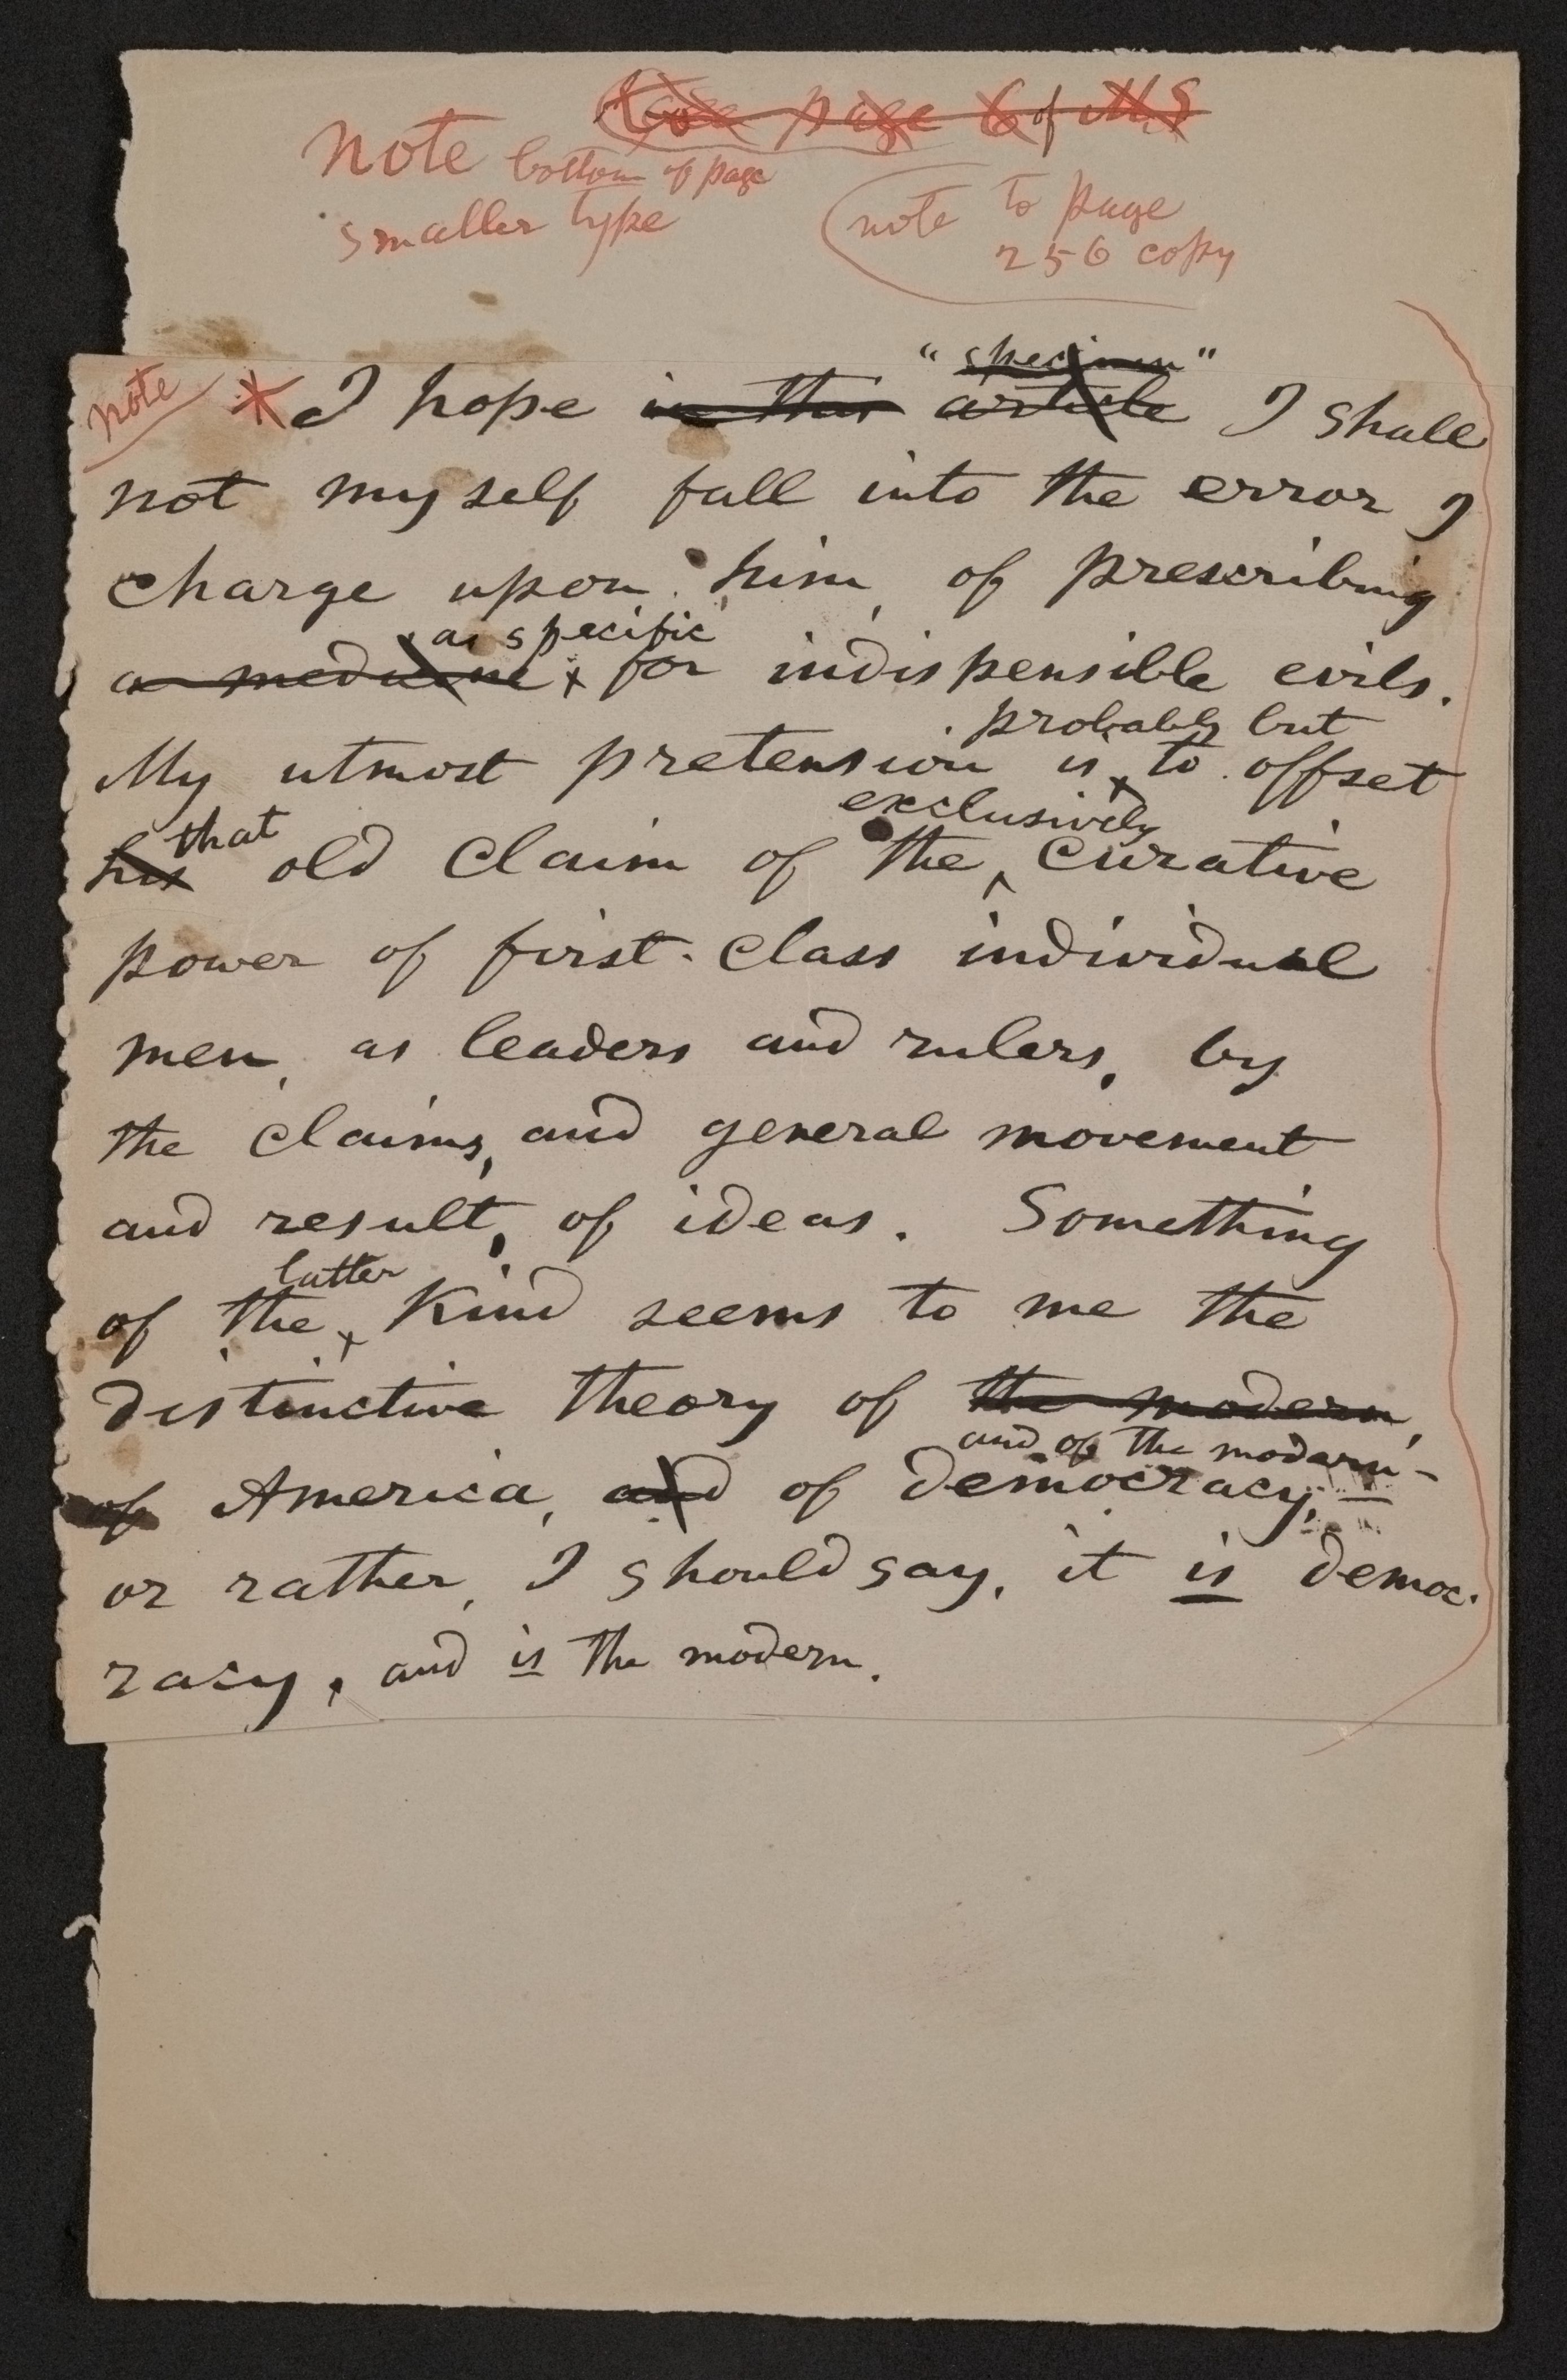 page 6 of MS
note bottom of page
smaller type
note to page
256 copy
note
* I hope in this article "specimen" I shall
not myself fall into the error I
charge upon him, of prescribing
a medicine a specific for indispensible evils.
My utmost pretension is probably but to offset
his that old claim of the exclusively curative
power of first-class individual
men, as leaders and rulers, by
the claims, and general movement
and result, of ideas. Something
of the latter kind seems to me the
distinctive theory of the modern,
of America, and of democracy, and of the modern—
or rather, I should say, it is democ-
racy, and is the modern.